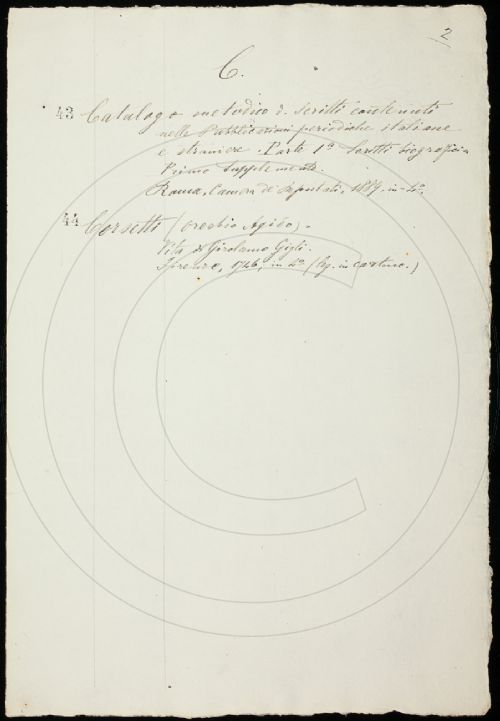 2
C.
43 Catalogo metodico d. scritti contenuti
nelle Pubblicazioni periodiche italiane
e straniere. Parte 1ª Scritti biografici
Primo Supplemento.
Roma, Camera de' Deputati, 1889. in-4º,
44 Corsetti (Oresbio Agieo).
Vita di Girolamo Gigli.
Firenze, 1746, in 4º (leg. in cartone.)